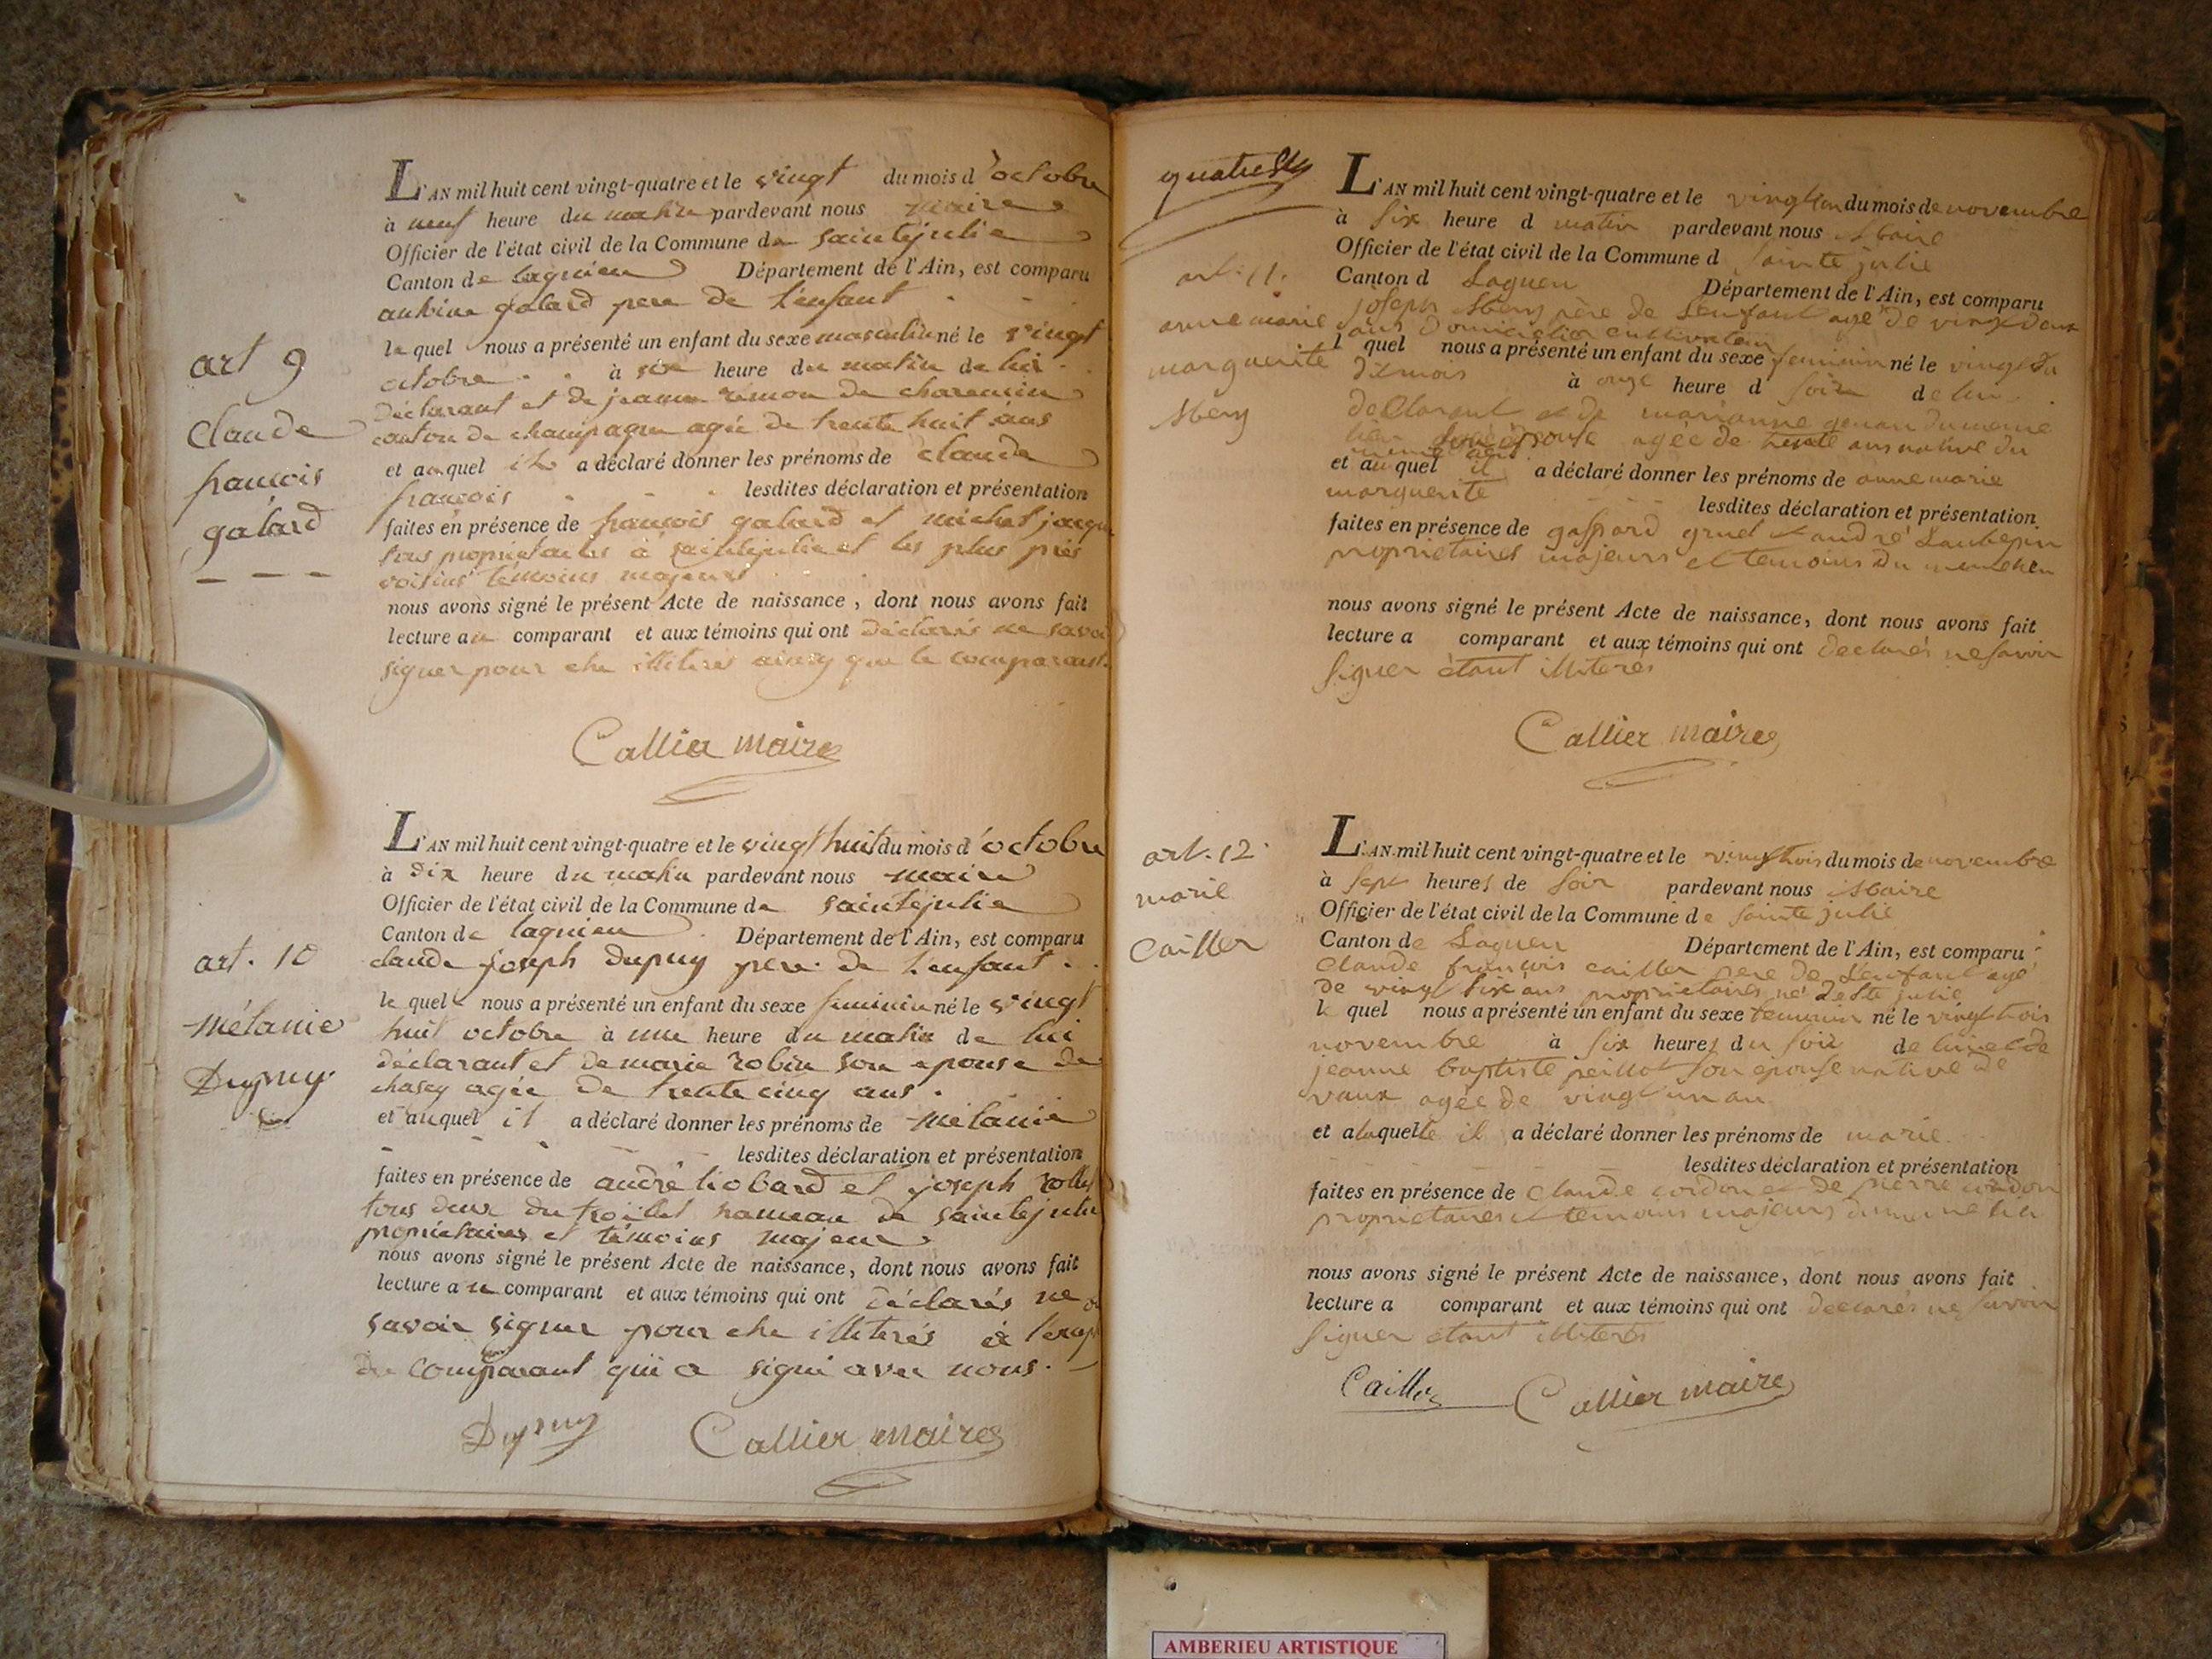 L'AN mil huit cent vingt-quatre et le vingt du mois d'octobre
à neuf heure du matin pardevant nous maire
Officier de l'état civil de la Commune de saintejulie
Canton de lagnieu Département de l'Ain, est comparu
galard pere de l'enfant
le quel nous a présenté un enfant du sexe masculin né le vingt
octobre à six heure du matin de lui
déclarant et de jeanne rémon de charencin
canton de champagne agée de trente huit ans
et auquel il a déclaré donner les prénoms de claude
françois lesdites déclaration et présentation
faites en présence de françois galard et michel
tous propriétaires à saintejulie et les plus près
voisins témoins majeurs
nous avons signé le présent Acte de naissance, dont nous avons fait
lecture au comparant et aux témoins qui ont déclarés ne savoi
signer pour etre illiterés ainsy que le comparant.
Callier maire
art 9
Claude
françois
galard
L'AN mil huit cent vingt-quatre et le vingt huit du mois d'octobre
à dix heure du matin pardevant nous maire
Officier de l'état civil de la Commune de saintejulie
Canton de lagnieu Département de l'Ain, est comparu
claude joseph dupuy pere de l'enfant
le quel nous a présenté un enfant du sexe feminin né le vingt
huit octobre à une heure du matin de lui
déclarant et de marie robin son epouse de
chasey agée de trente cinq ans.
et auquel il a déclaré donner les prénoms de mélanie
lesdites déclaration et présentation
faites en présence de andré liobard et joseph
tous deux du hameau de saintejulie
propriétaires et témoins majeurs
nous avons signé le présent Acte de naissance, dont nous avons fait
lecture au comparant et aux témoins qui ont déclarés ne
savoir signer pour etre illiterés à
du comparant qui a signé avec nous.
Dupuy Callier maire
art. 10
Mélanie
Dupuy
L'AN mil huit cent vingt-quatre et le du mois de novembre
à six heure d matin pardevant nous Maire
Officier de l'état civil de la Commune d Sainte julie
Canton d Lagneu Département de l'Ain, est comparu
joseph père de l'enfant agé de vingt deux
ans cultivateur
l quel nous a présenté un enfant du sexe feminin né le vingt
du mois à onze heure d soire de lui
declarant et de marianne du meme
lieu son epouse agée de trente ans native du
meme lieu
et auquel il a déclaré donner les prénoms de anne marie
marguerite lesdites déclaration et présentation
faites en présence de gaspard et andré
proprietaires majeurs et temoins du meme lieu
nous avons signé le présent Acte de naissance, dont nous avons fait
lecture a comparant et aux témoins qui ont declarés ne savoir
signer étant illiterés
Callier maire
art. 11.
anne marie
marguerite
L'AN mil huit cent vingt-quatre et le vingt trois du mois de novembre
à sept heures de soir pardevant nous Maire
Officier de l'état civil de la Commune de Sainte julie
Canton de Lagneu Département de l'Ain, est comparu
Claude françois cailler pere de l'enfant agé
de vingt six ans proprietaires né de Ste julie
le quel nous a présenté un enfant du sexe feminin né le vingt trois
novembre à six heures du soir de lui et de
jeanne baptiste peillot son epouse native de
vaux agée de vingt un an
et alaquelle il a déclaré donner les prénoms de marie.
lesdites déclaration et présentation
faites en présence de Claude cordon et de pierre cordon
proprietaires et temoins majeurs du meme lieu
nous avons signé le présent Acte de naissance, dont nous avons fait
lecture a comparant et aux témoins qui ont declarés ne savoir
signer étant illiterés
Cailler Callier maire
art. 12
marie
Cailler
AMBERIEU ARTISTIQUE